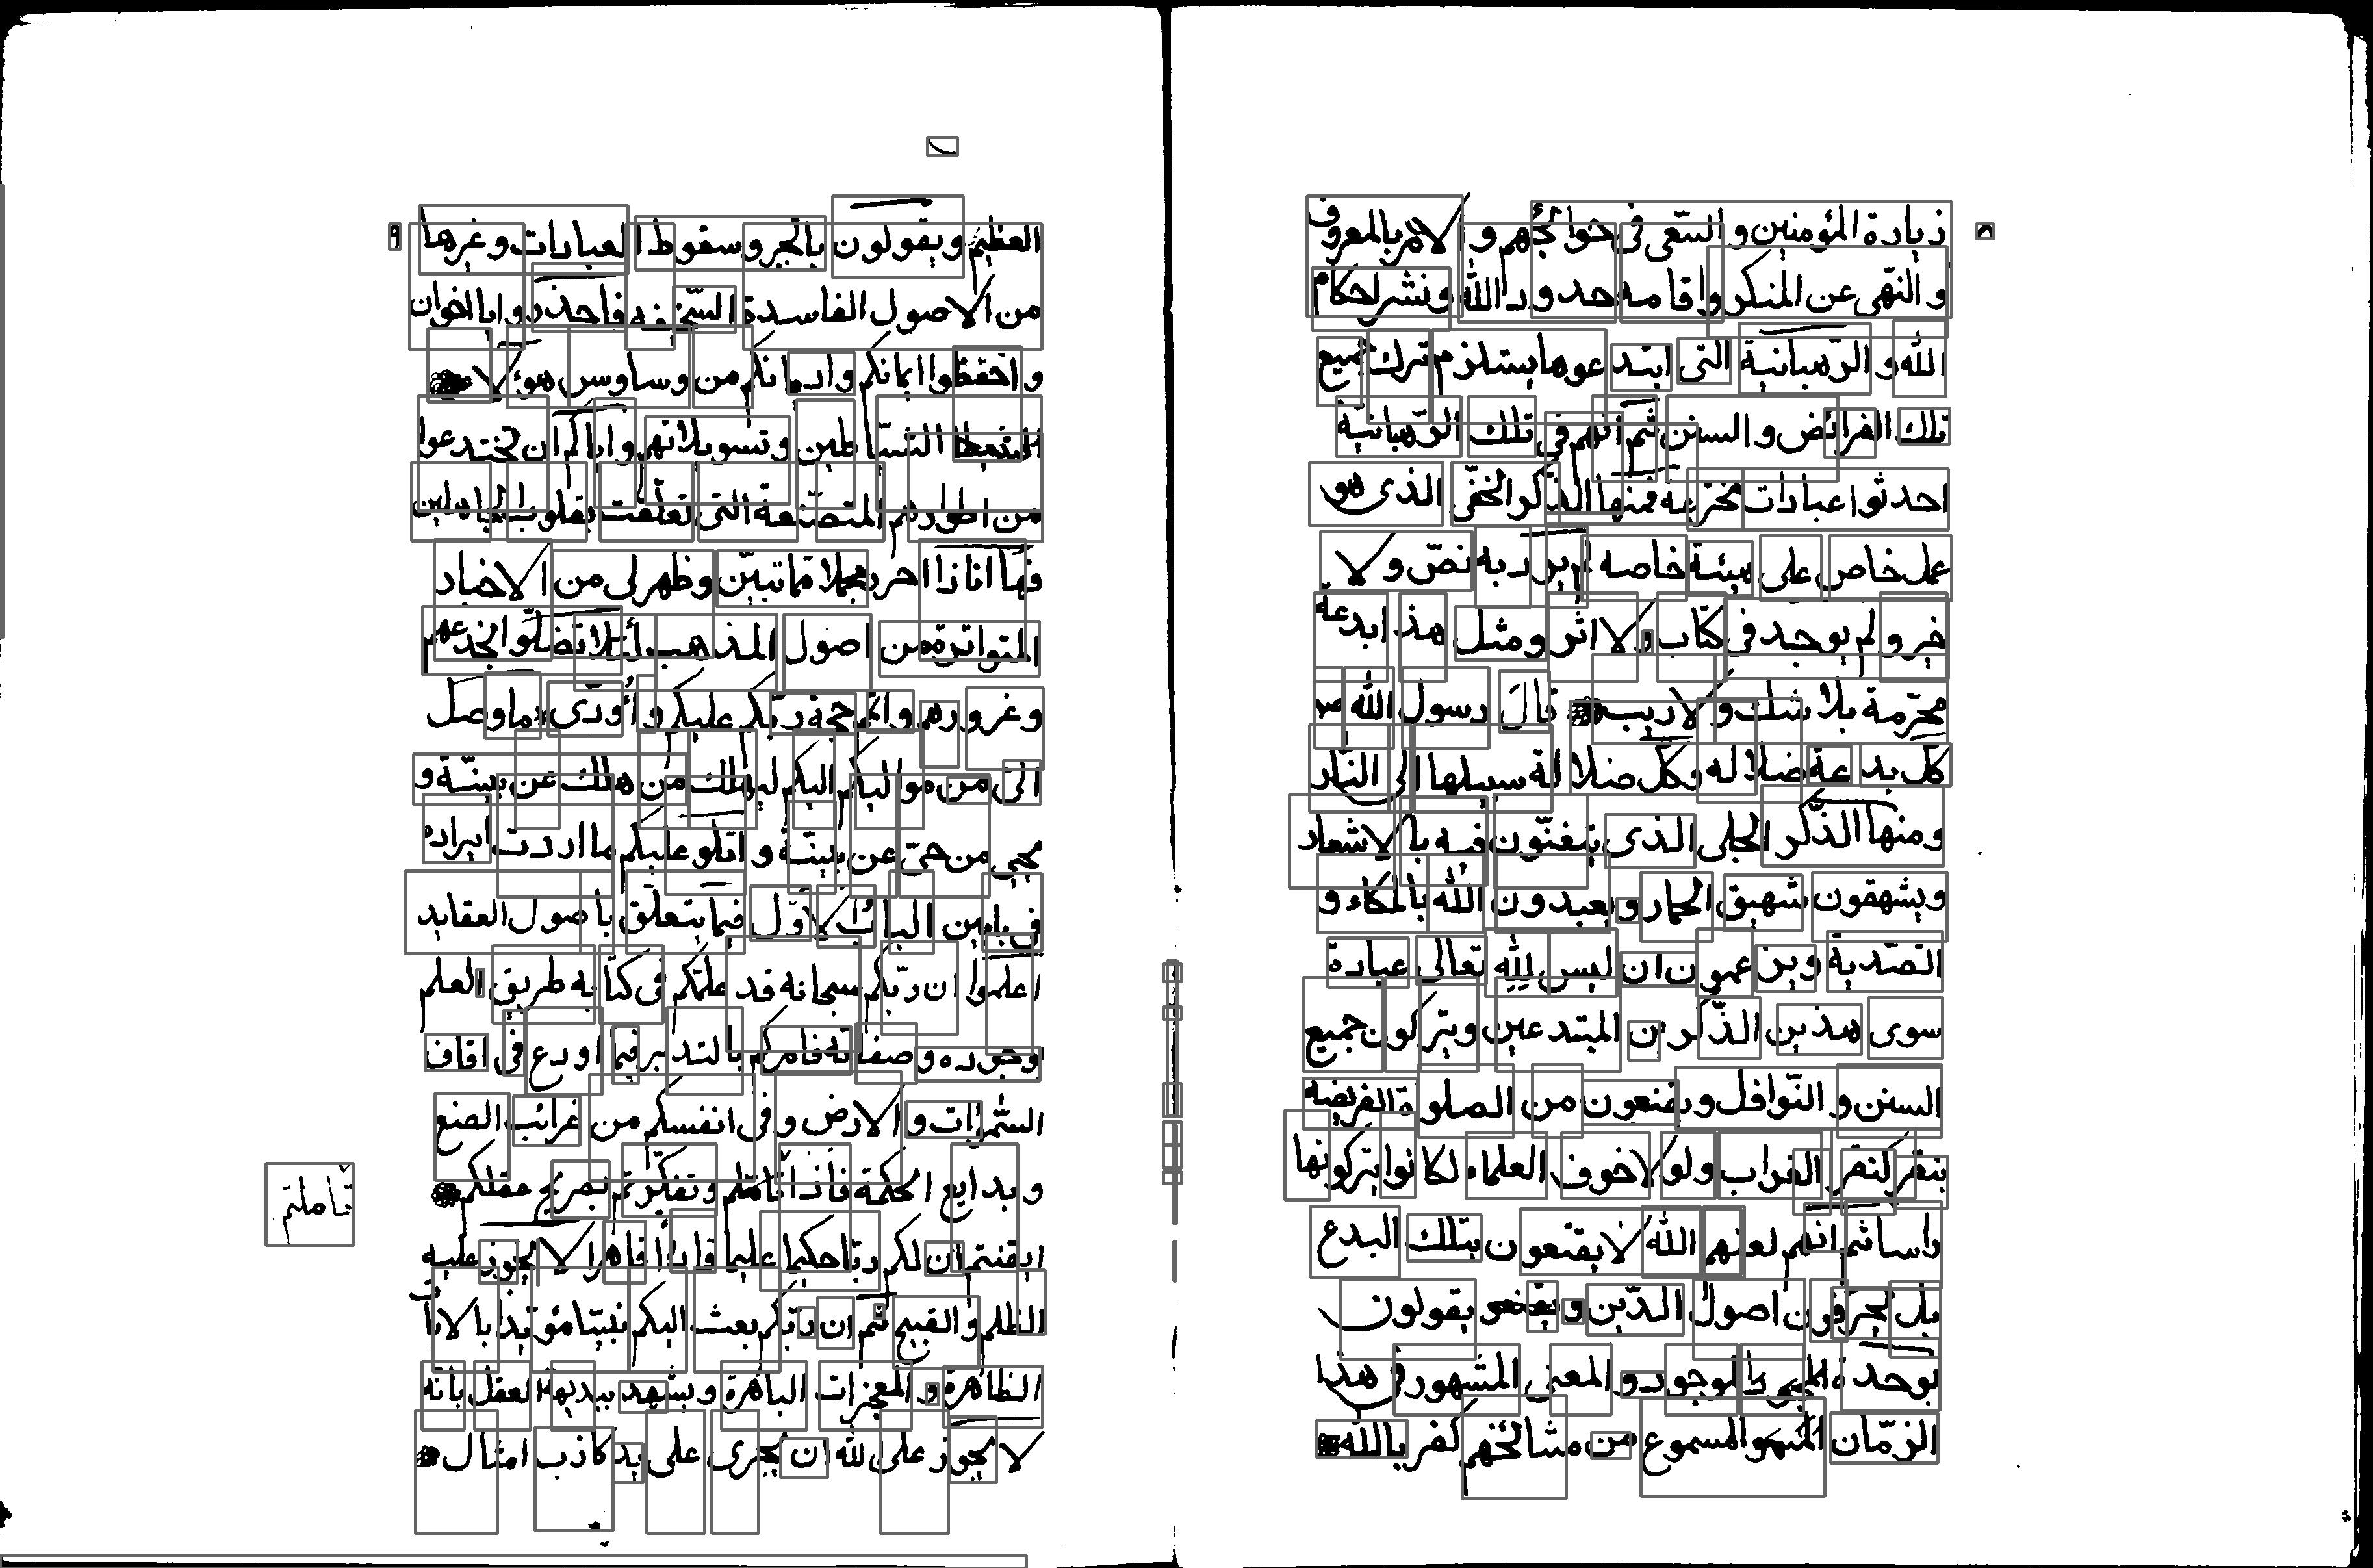 ٨
زيارة المؤمنين و السّعى فى حوائجهم و الامر بالمعروف
و النّهى عن المنكر و اقامه حدود الله و نشر احكام
الله و الرّهبانية التى ابتدعوها يستلزم ترك جميع
تلك الفرائض و السنن ثم انهم فى تلك الرّهبانية
احدثوا عبادات مخترعه فمنها الذّكر الخفّى الذى هو
عمل خاص على هيئة خاصه لم يرد به نصّ و لا
خبر و لم يوجد فى كتاب و لا اثر و مثل هذا بدعة
محرّمة بلا شك و لا ريب قال رسول الله ص
كل بدعة ضلاله و كل ضلالة سبيلها الى النّار
و منها الذّكر الجلى الذى يتغنّون فيه بالاشعار
و يشهقون شهيق الحمار و يعبدون الله بالمكاء و
التصّدية و يزعمون ان ليس لله تعالى عبادة
سوى هذين الذّكرين المبتدعين و يتركون جميع
السنن و النّوافل و يقنعون من الصلوة الفريضه
بنقر كنقر الغراب و لو لا خوف العلماء لكانوا يتركونها
راسا ثم انهم لعنهم الله لا يقنعون بتلك البدع
بل يحرّفون اصول الدّين و يقولون
بوحدة الوجود و المعنى المشهور فى هذا
الزّمان المسموع من مشائخهم كفر بالله
٩
العظيم و يقولون بالجبر و سقوط العبادات و غيرها
من الاصول الفاسدة السّخيفه فاحذروا يا اخوان
و احفظوا ايمانكم و اديانكم من وساوس هؤلاء
الشّياطين و تسويلاتهم و اياكم ان تخدعوا
من اطوارهم المتصنّعة التى تعلّقت بقلوب الجاهلين
فها انا ذا احرر مجملا مما تبيّن و ظهر لى من الاخبار
المتواترة من اصول المذهب لئلا تضلّوا بخدعهم
و غرورهم و اتم حجة ربّكم عليكم و أؤدّى ما وصل
الى من مواليكم اليكم ليهلك من هلك عن بيّنة و
يحيى من حىّ عن بيّنة و اتلو عليكم ما اردت ايراده
فى بابين الباب الاوّل فيما يتعلّق باصول العقايد
اعلموا ان ربّكم سبحانه قد علمّكم فى كتابه طريق العلم
بوجوده و صفاته فامركم بالتدبر فيما اودع فى آفاق
السّموات و الارض و فى انفسكم من غرائب الصنع
و بدايع الحكمة فاذا تأملتم و تفكّرتم بصريح عقلكم
تأملتم
ايقنتم ان لكم ربّا حكيما عليما قادرا قاهرا لا يجوز عليه
الظلم و القبيح ثم ان ربّكم بعث اليكم نبيّا مؤيّدا بالايات
الظاهرة و المعجزات الباهرة و يشهد بديهة العقل بانّه
لا يجوز على الله ان يجرى على يد كاذب امثال